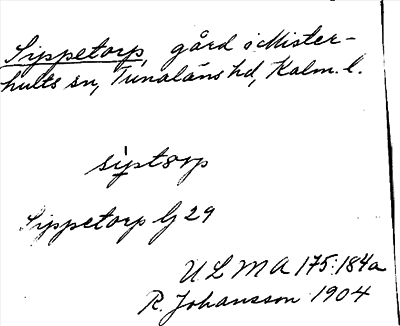 Sippetorp, gård i Mister-
hults sn, Tunaläns hd, Kalm. l.
siptorp
Sippetorp Gj 29
ULMA 175:184a
R. Johansson 1904